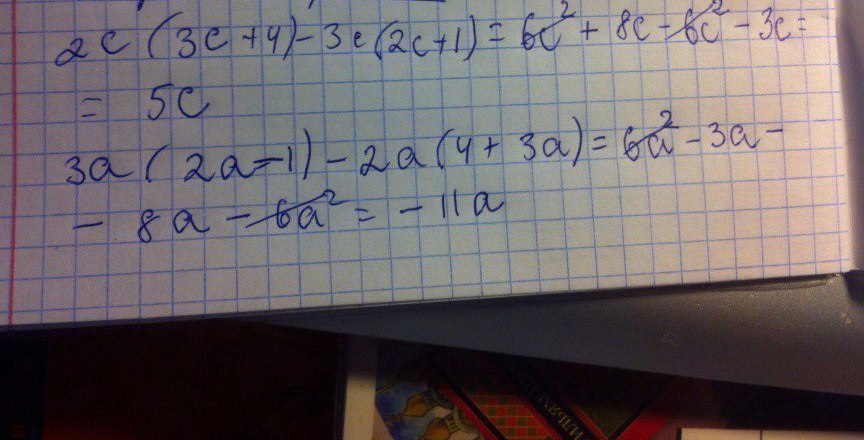 2c (3c + 4) - 3c (2c + 1) = 6c² + 8c - 6c² - 3c =
= 5c
3a ( 2a - 1) - 2a (4 + 3a) = 6a² - 3a -
- 8a - 6a² = - 11a